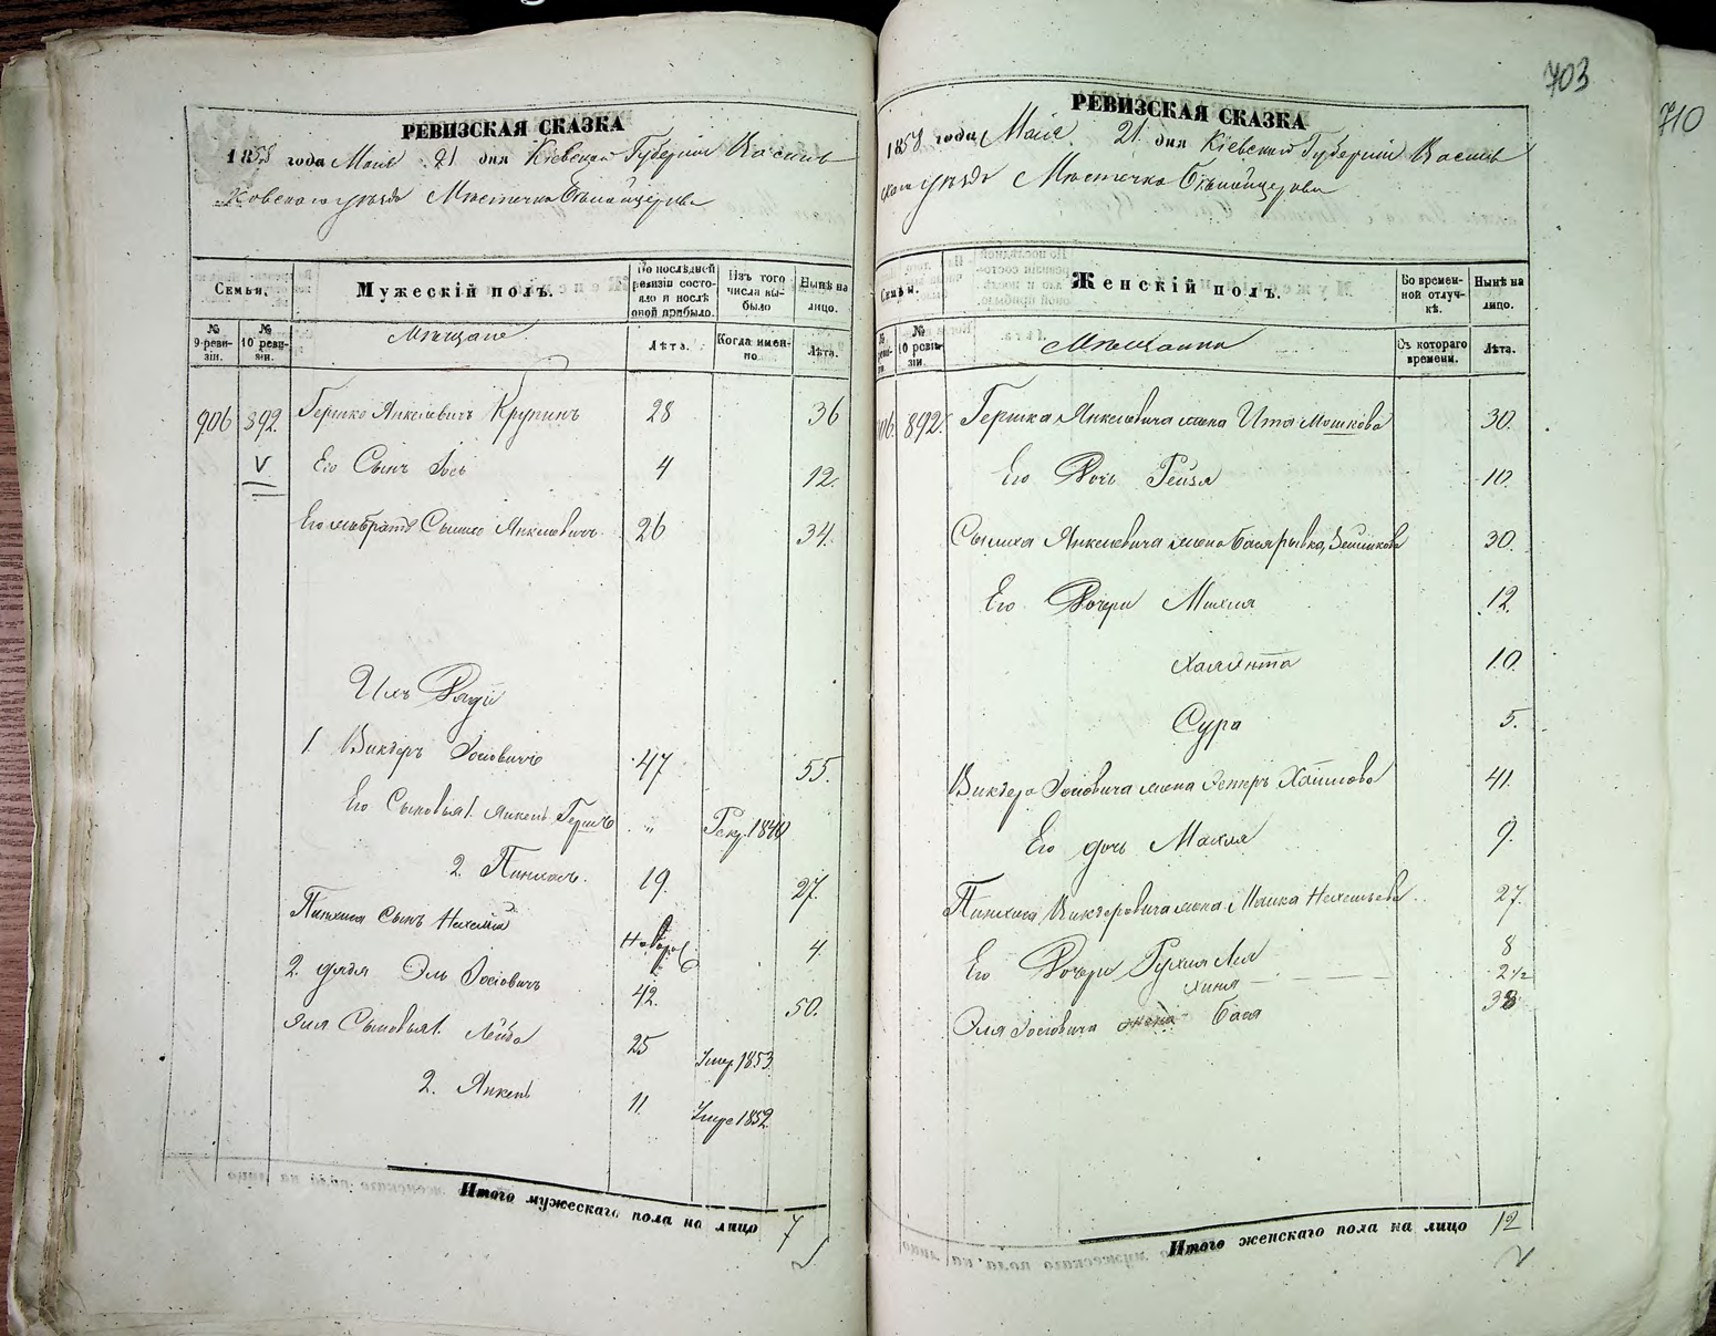 703
710
РЕВИЗСКАЯ СКАЗКА
1858 года Мая 21 дня Кіевской Губерніи Василь
ковскаго уѣзда Мѣстечка Бѣлойцеркви
Семья.
Мужескій полъ.
По послѣдней ревизіи состояло и послѣ оной прибыло.
Изъ того числа выбыло
Нынѣ на лицо.
№ 9 ревизіи.
№ 10 ревизіи.
Мѣщане
Лѣта.
Когда именно
Лѣта.
906 892. Гершко Янкелевичъ Крупикъ 28 36
V Его Сынъ Іось 4 12.
Его братъ Сымхо Янкелевичъ 26 34.
Ихъ Дяди
1. Викдеръ Іосіовичъ 47 55.
Его Сыновья 1. Янкель Гершко " Рекр. 1840
2. Пинхасъ. 19. 27.
Пинхаса Сынъ Нахемій Новорож 4.
2. дядя Эль Іосіовичъ 42. 50.
Эля Сыновья 1. Лейба 25 Умер. 1853.
2. Янкель 11. Умре 1852.
Итого мужескаго пола на лицо 7
РЕВИЗСКАЯ СКАЗКА
1858 года Мая 21 дня Кіевской Губерніи Василь
скаго уѣзда Мѣстечка Бѣлойцеркви
Семьи.
Женскій полъ.
Во временной отлучкѣ.
Нынѣ на лицо.
№ 10 ревизіи.
Мѣщанки
Съ котораго времени.
Лѣта.
06. 892. Гершка Янкелевича жена Ита Мошкова 30.
Его Дочь Рейзя 10.
Сымха Янкелевича жена Басярывка 30.
Его Дочери Михля 12.
Хая 10.
Сура 5.
Викдера Іосіовича жена Эстеръ Хаимова 41.
Его дочь Махля 9.
Пинхаса Викдеровича жена 27.
Его Дочери Рухля Лея 8
Хиня 2 1/2
Эля Іосіовича жена Бася 38
Итого женскаго пола на лицо 12